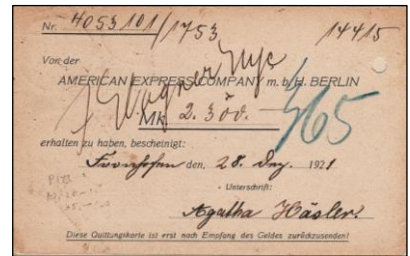 Nr. 4053101/1753 14415
Von der
AMERICAN EXPRESS COMPANY m. b. H. BERLIN
Mk 2.300.
465
erhalten zu haben, bescheinigt:
Fronhofen den, 28. Dez. 1921
Unterschrift:
Agatha Häsler
Diese Quittungskarte ist erst nach Empfang des Geldes zurückzusenden!